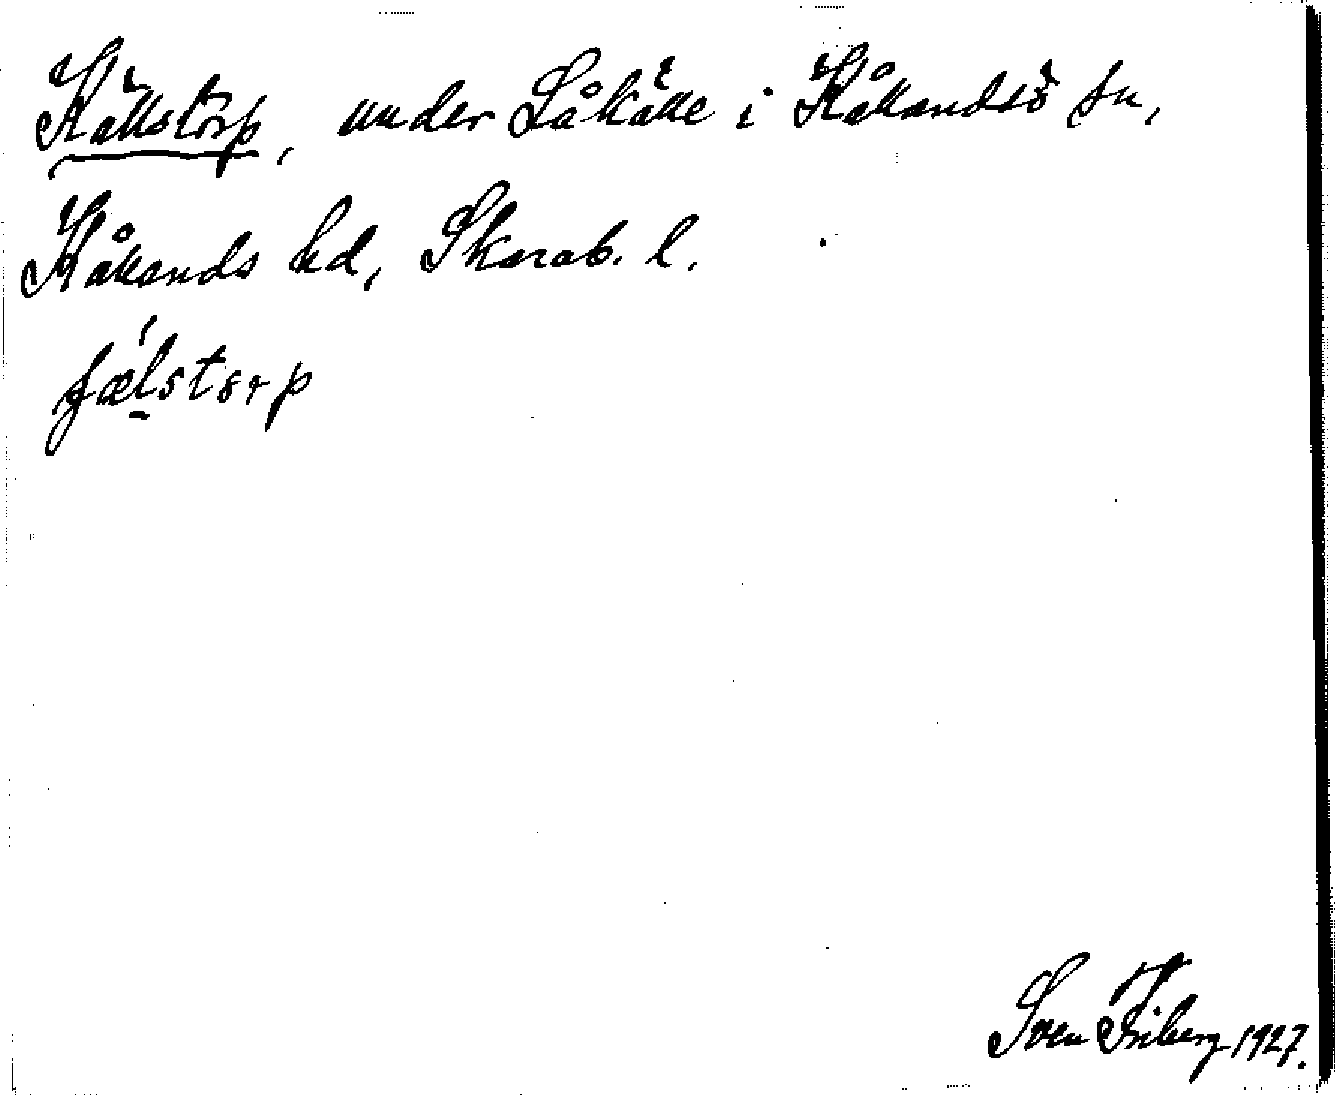 Källstorp, under Såkäne i Kållandsö sn,
Kållands hd, Skarab. l.
fælstorp
Sven Friberg 1927.